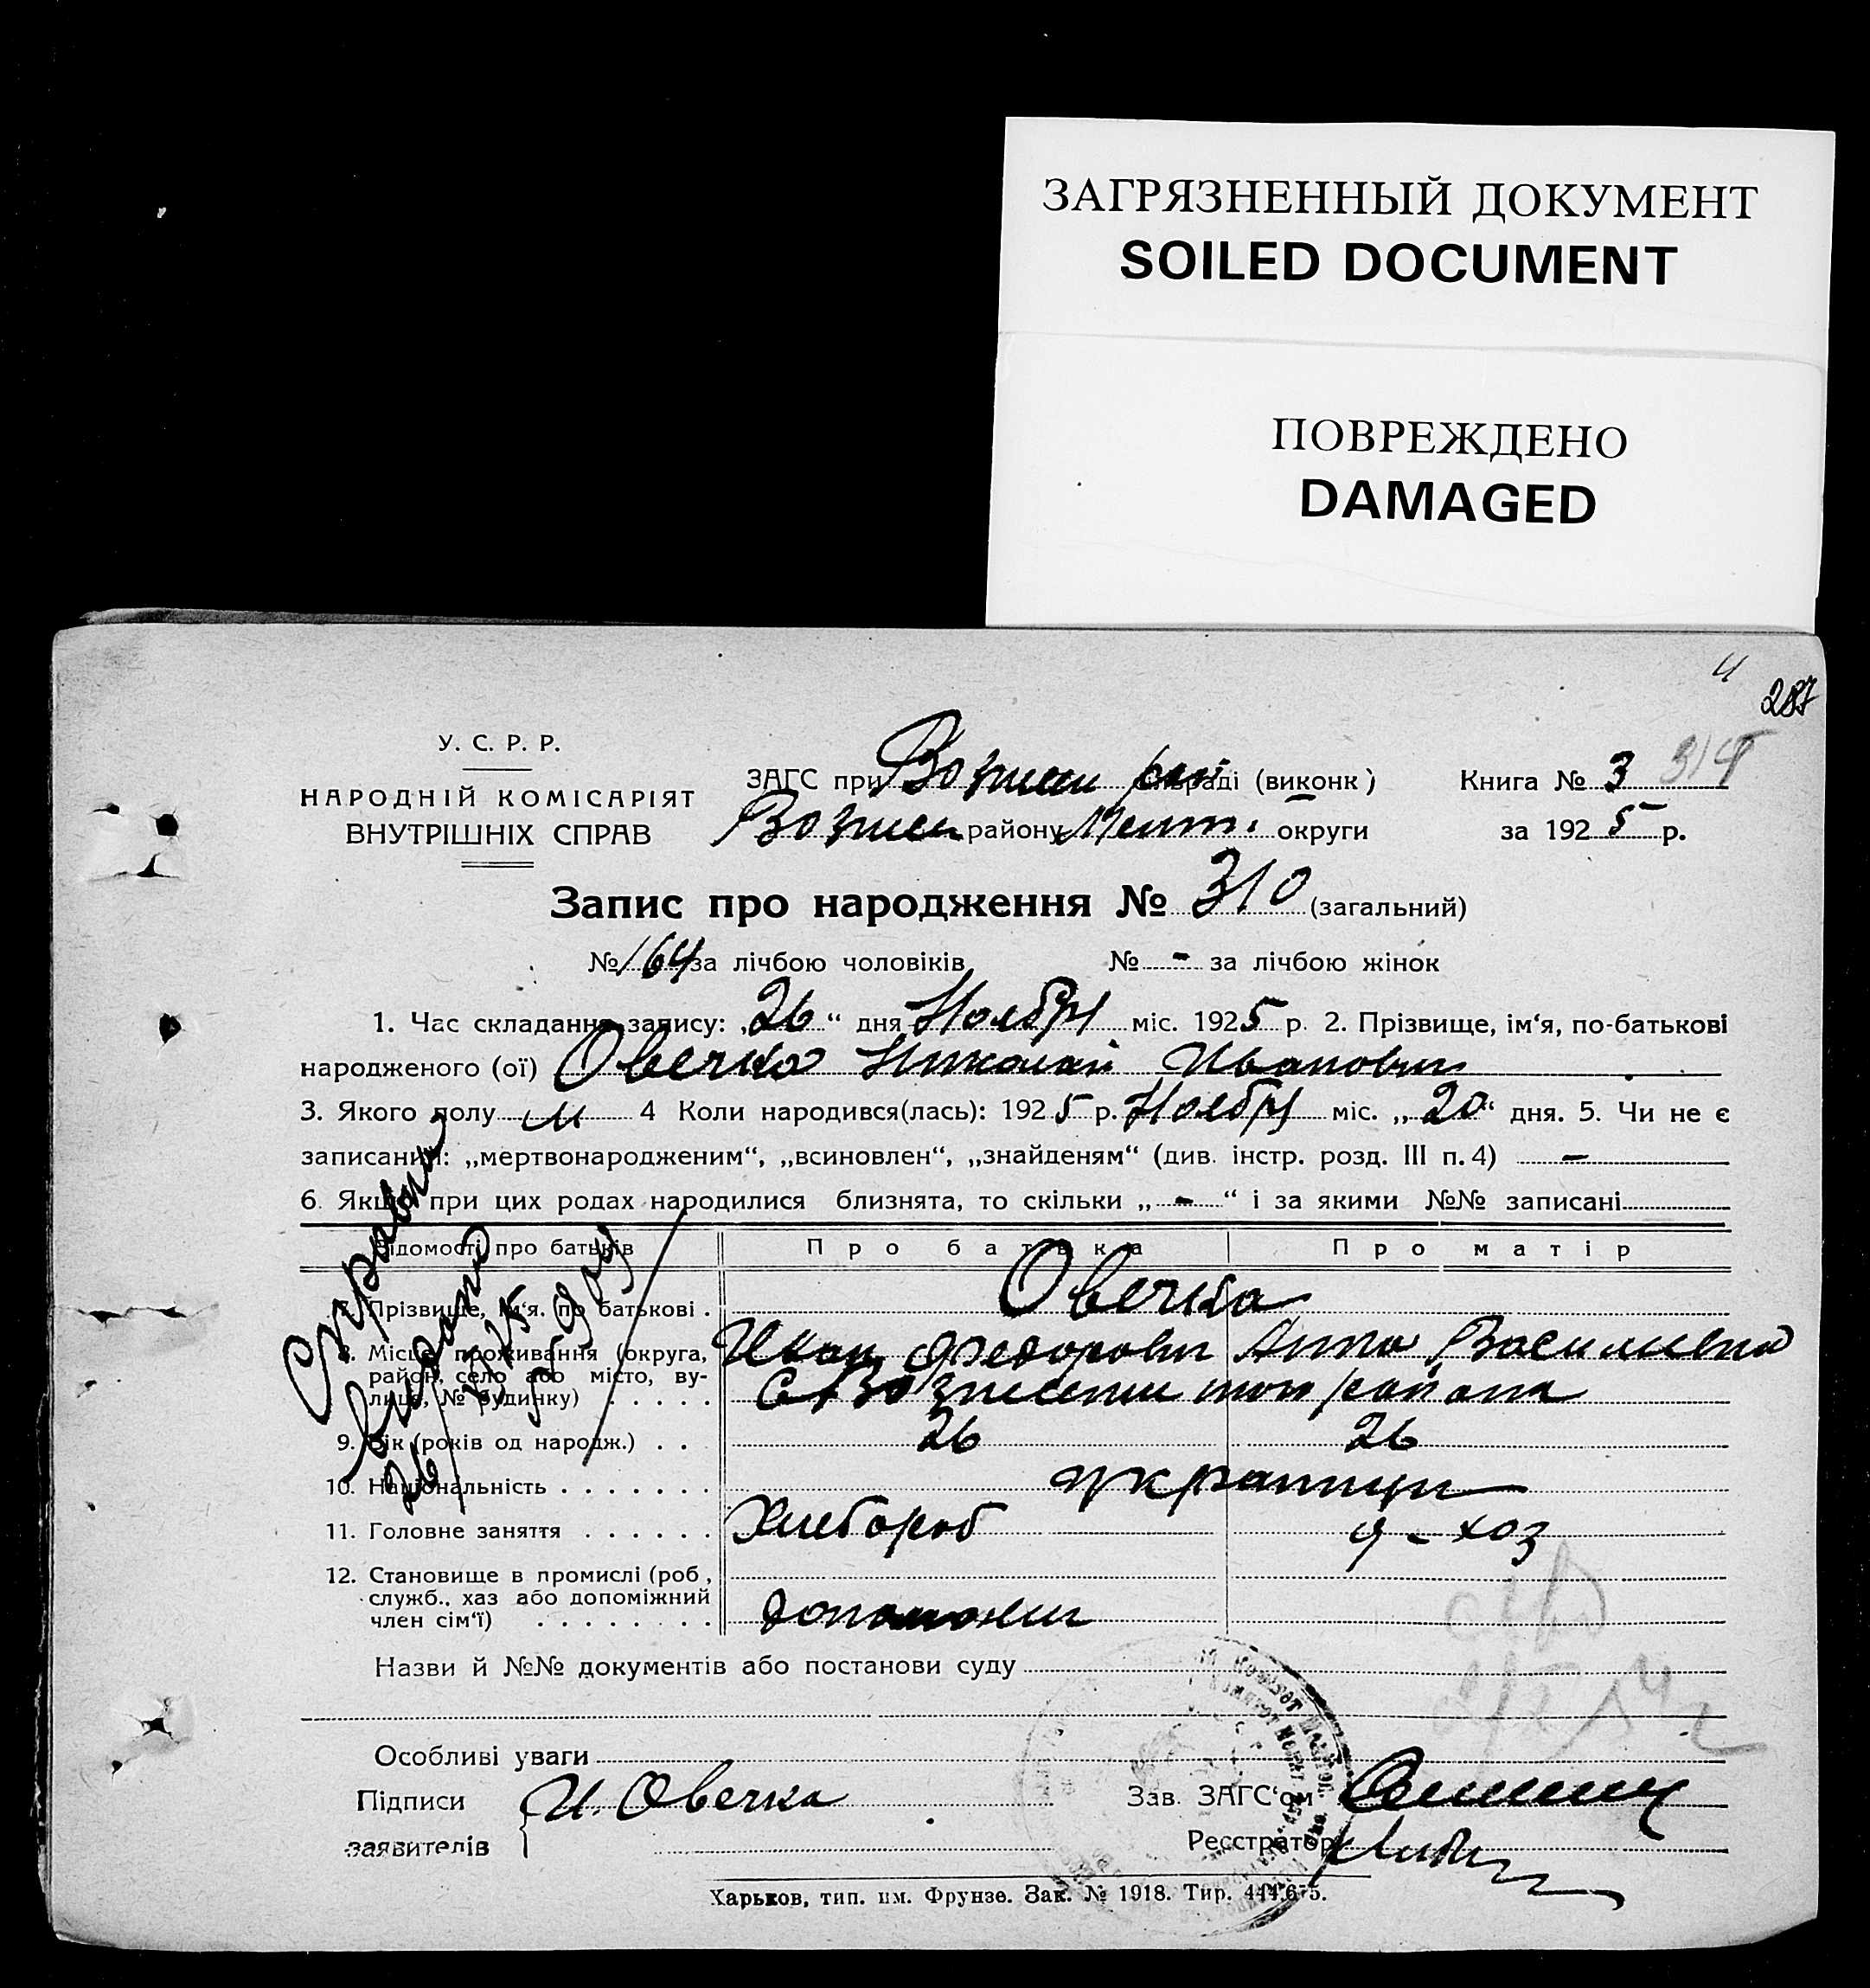 ЗАГРЯЗНЕННЫЙ ДОКУМЕНТ
SOILED DOCUMENT
ПОВРЕЖДЕНО
DAMAGED
287
У. С. Р. Р.
НАРОДНІЙ КОМІСАРІЯТ
ВНУТРІШНІХ СПРАВ
ЗАГС при Вознесен рай (виконк) Книга № 3 314
Вознесен району округи за 1925 р.
Запис про народження № 310 (загальний)
№ 164 за лічбою чоловіків № - за лічбою жінок
1. Час складання запису: „26“ дня Ноября міс. 1925 р. 2. Прізвище, ім‘я, по-батькові
народженого (ої) Овечка Николай Иванович
3. Якого полу м 4 Коли народився(лась): 1925 р. Ноября міс. „20“ дня. 5. Чи не є
записаний: „мертвонародженим“, „всиновлен“, „знайденям“ (див. інстр. розд. III п. 4) -
6. Якщо при цих родах народилися близнята, то скільки „-“ і за якими №№ записані
Відомості про батьків Про батька Про матір
7. Прізвище, ім‘я. по батькові . Овечка
Иван Федорович Анна Васильевна
8. Місце проживання (округа, район, село або місто, вулиця, № будинку) . . . . . С Вознесенск района
9. Вік (років од народж.) . . 26 26
10. Національність . . . . . . . украинцы
11. Головне заняття . . . . . . Хлебороб д-хоз
12. Становище в промислі (роб, служб., хаз або допоміжний член сім‘ї) . . . . . . . .
Справка выдана
Назви й №№ документів або постанови суду
Особливі уваги
Підписи заявителів И. Овечка
Зав. ЗАГС‘ом
Реєстратор
Харьков, тип. им. Фрунзе. Зак. № 1918. Тир. 444.675.